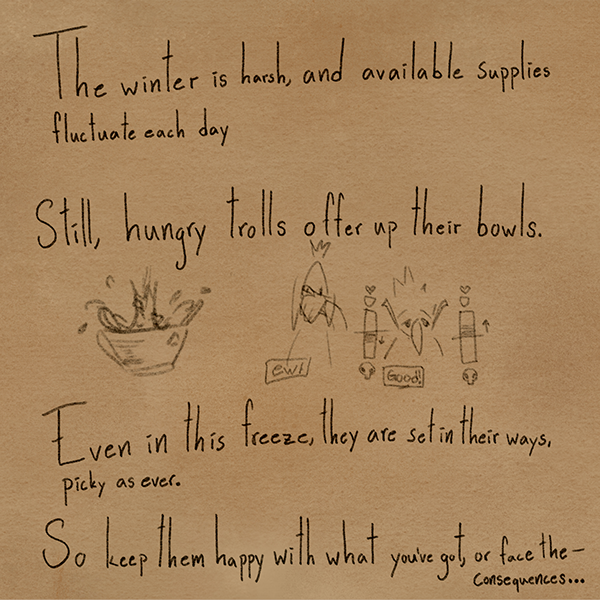 The winter is harsh, and available supplies
fluctuate each day
Still, hungry trolls offer up their bowls.
ew!
Good!
Even in this freeze, they are set in their ways,
picky as ever.
So keep them happy with what you've got, or face the—
Consequences...